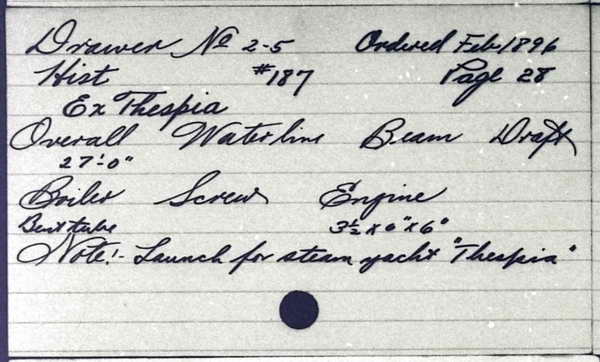 Drawer No 2-5 Ordered Feb. 1896
Hist #187 Page 28
Ex Thespia
Overall Waterline Beam Draft
27'-0"
Boiler Screw Engine
Bent tube 3½ x 6" x 6"
Note:- Launch for steam yacht "Thespia"